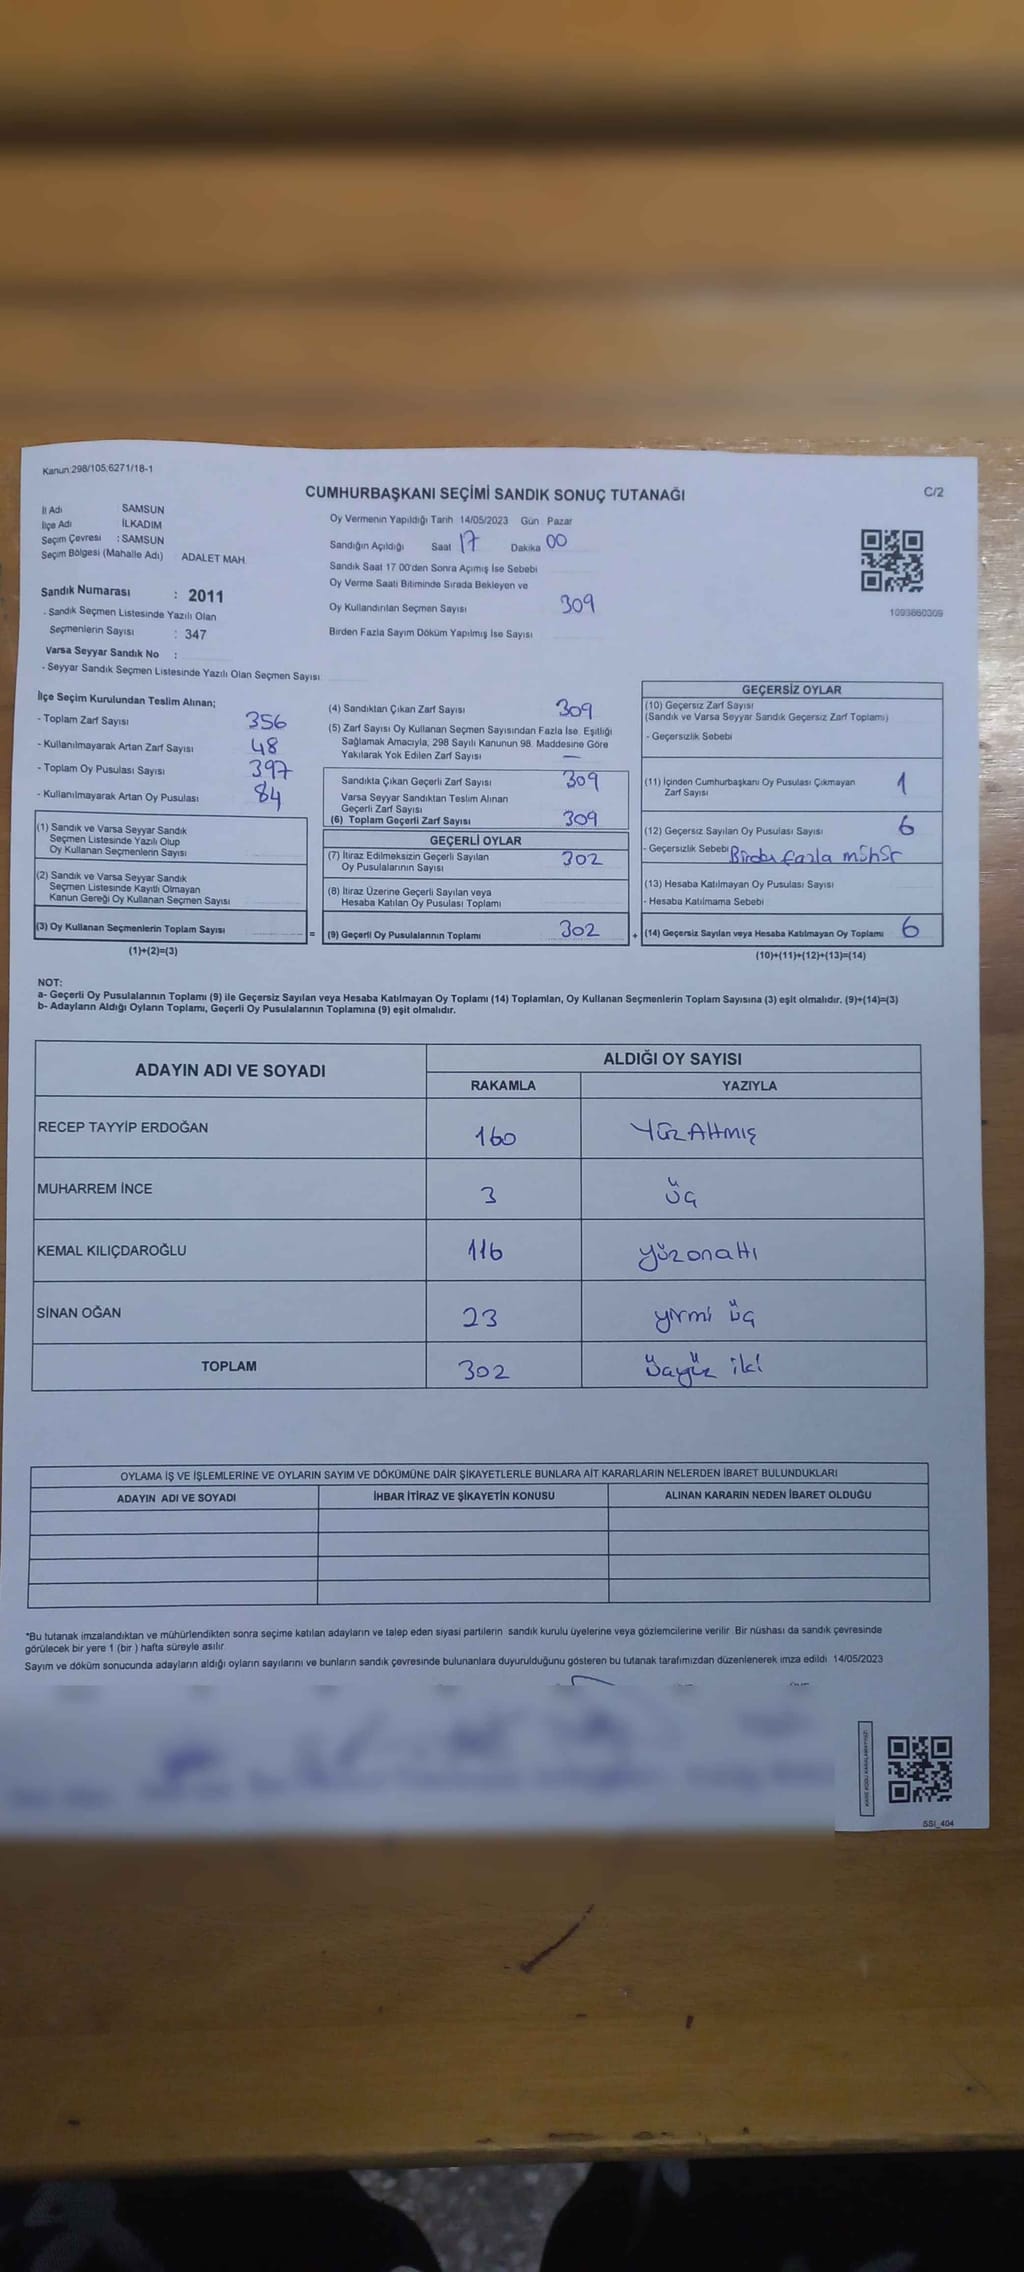 Kanun:298/105,6271/18-1
C/2
CUMHURBAŞKANI SEÇİMİ SANDIK SONUÇ TUTANAĞI
İl Adı : SAMSUN
İlçe Adı : İLKADIM
Seçim Çevresi : SAMSUN
Seçim Bölgesi (Mahalle Adı) : ADALET MAH.
Oy Vermenin Yapıldığı Tarih 14/05/2023 Gün Pazar
Sandığın Açıldığı Saat 17 Dakika 00
Sandık Saat 17 00'den Sonra Açımış İse Sebebi
Oy Verme Saati Bitiminde Sırada Bekleyen ve
Oy Kullandırılan Seçmen Sayısı 309
Birden Fazla Sayım Döküm Yapılmış İse Sayısı
1093660309
Sandık Numarası : 2011
- Sandık Seçmen Listesinde Yazılı Olan
Seçmenlerin Sayısı : 347
Varsa Seyyar Sandık No :
- Seyyar Sandık Seçmen Listesinde Yazılı Olan Seçmen Sayısı
İlçe Seçim Kurulundan Teslim Alınan;
- Toplam Zarf Sayısı 356
- Kullanılmayarak Artan Zarf Sayısı 48
- Toplam Oy Pusulası Sayısı 397
- Kullanılmayarak Artan Oy Pusulası 84
(1) Sandık ve Varsa Seyyar Sandık
Seçmen Listesinde Yazılı Olup
Oy Kullanan Seçmenlerin Sayısı
(2) Sandık ve Varsa Seyyar Sandık
Seçmen Listesinde Kayıtlı Olmayan
Kanun Gereği Oy Kullanan Seçmen Sayısı
(3) Oy Kullanan Seçmenlerin Toplam Sayısı
(1)+(2)=(3)
=
(4) Sandıktan Çıkan Zarf Sayısı 309
(5) Zarf Sayısı Oy Kullanan Seçmen Sayısından Fazla İse Eşitliği
Sağlamak Amacıyla, 298 Sayılı Kanunun 98. Maddesine Göre
Yakılarak Yok Edilen Zarf Sayısı —
Sandıkta Çıkan Geçerli Zarf Sayısı 309
Varsa Seyyar Sandıktan Teslim Alınan
Geçerli Zarf Sayısı
(6) Toplam Geçerli Zarf Sayısı 309
GEÇERLİ OYLAR
(7) İtiraz Edilmeksizin Geçerli Sayılan
Oy Pusulalarının Sayısı 302
(8) İtiraz Üzerine Geçerli Sayılan veya
Hesaba Katılan Oy Pusulası Toplamı
(9) Geçerli Oy Pusulalarının Toplamı 302
+
GEÇERSİZ OYLAR
(10) Geçersiz Zarf Sayısı
(Sandık ve Varsa Seyyar Sandık Geçersiz Zarf Toplamı)
- Geçersizlik Sebebi
(11) İçinden Cumhurbaşkanı Oy Pusulası Çıkmayan
Zarf Sayısı 1
(12) Geçersiz Sayılan Oy Pusulası Sayısı 6
- Geçersizlik Sebebi Birden fazla mühür
(13) Hesaba Katılmayan Oy Pusulası Sayısı
- Hesaba Katılmama Sebebi
(14) Geçersiz Sayılan veya Hesaba Katılmayan Oy Toplamı 6
(10)+(11)+(12)+(13)=(14)
NOT:
a- Geçerli Oy Pusulalarının Toplamı (9) ile Geçersiz Sayılan veya Hesaba Katılmayan Oy Toplamı (14) Toplamları, Oy Kullanan Seçmenlerin Toplam Sayısına (3) eşit olmalıdır. (9)+(14)=(3)
b- Adayların Aldığı Oyların Toplamı, Geçerli Oy Pusulalarının Toplamına (9) eşit olmalıdır.
ADAYIN ADI VE SOYADI
ALDIĞI OY SAYISI
RAKAMLA YAZIYLA
RECEP TAYYİP ERDOĞAN 160 YüzAltmış
MUHARREM İNCE 3 üç
KEMAL KILIÇDAROĞLU 116 yüzonaltı
SİNAN OĞAN 23 yirmi üç
TOPLAM 302 üçyüz iki
OYLAMA İŞ VE İŞLEMLERİNE VE OYLARIN SAYIM VE DÖKÜMÜNE DAİR ŞİKAYETLERLE BUNLARA AİT KARARLARIN NELERDEN İBARET BULUNDUKLARI
ADAYIN ADI VE SOYADI İHBAR İTİRAZ VE ŞİKAYETİN KONUSU ALINAN KARARIN NEDEN İBARET OLDUĞU
*Bu tutanak imzalandıktan ve mühürlendikten sonra seçime katılan adayların ve talep eden siyasi partilerin sandık kurulu üyelerine veya gözlemcilerine verilir. Bir nüshası da sandık çevresinde
görülecek bir yere 1 (bir ) hafta süreyle asılır
Sayım ve döküm sonucunda adayların aldığı oyların sayılarını ve bunların sandık çevresinde bulunanlara duyurulduğunu gösteren bu tutanak tarafımızdan düzenlenerek imza edildi 14/05/2023
KARE KODU KARALAMAYINIZ!
SSI_404